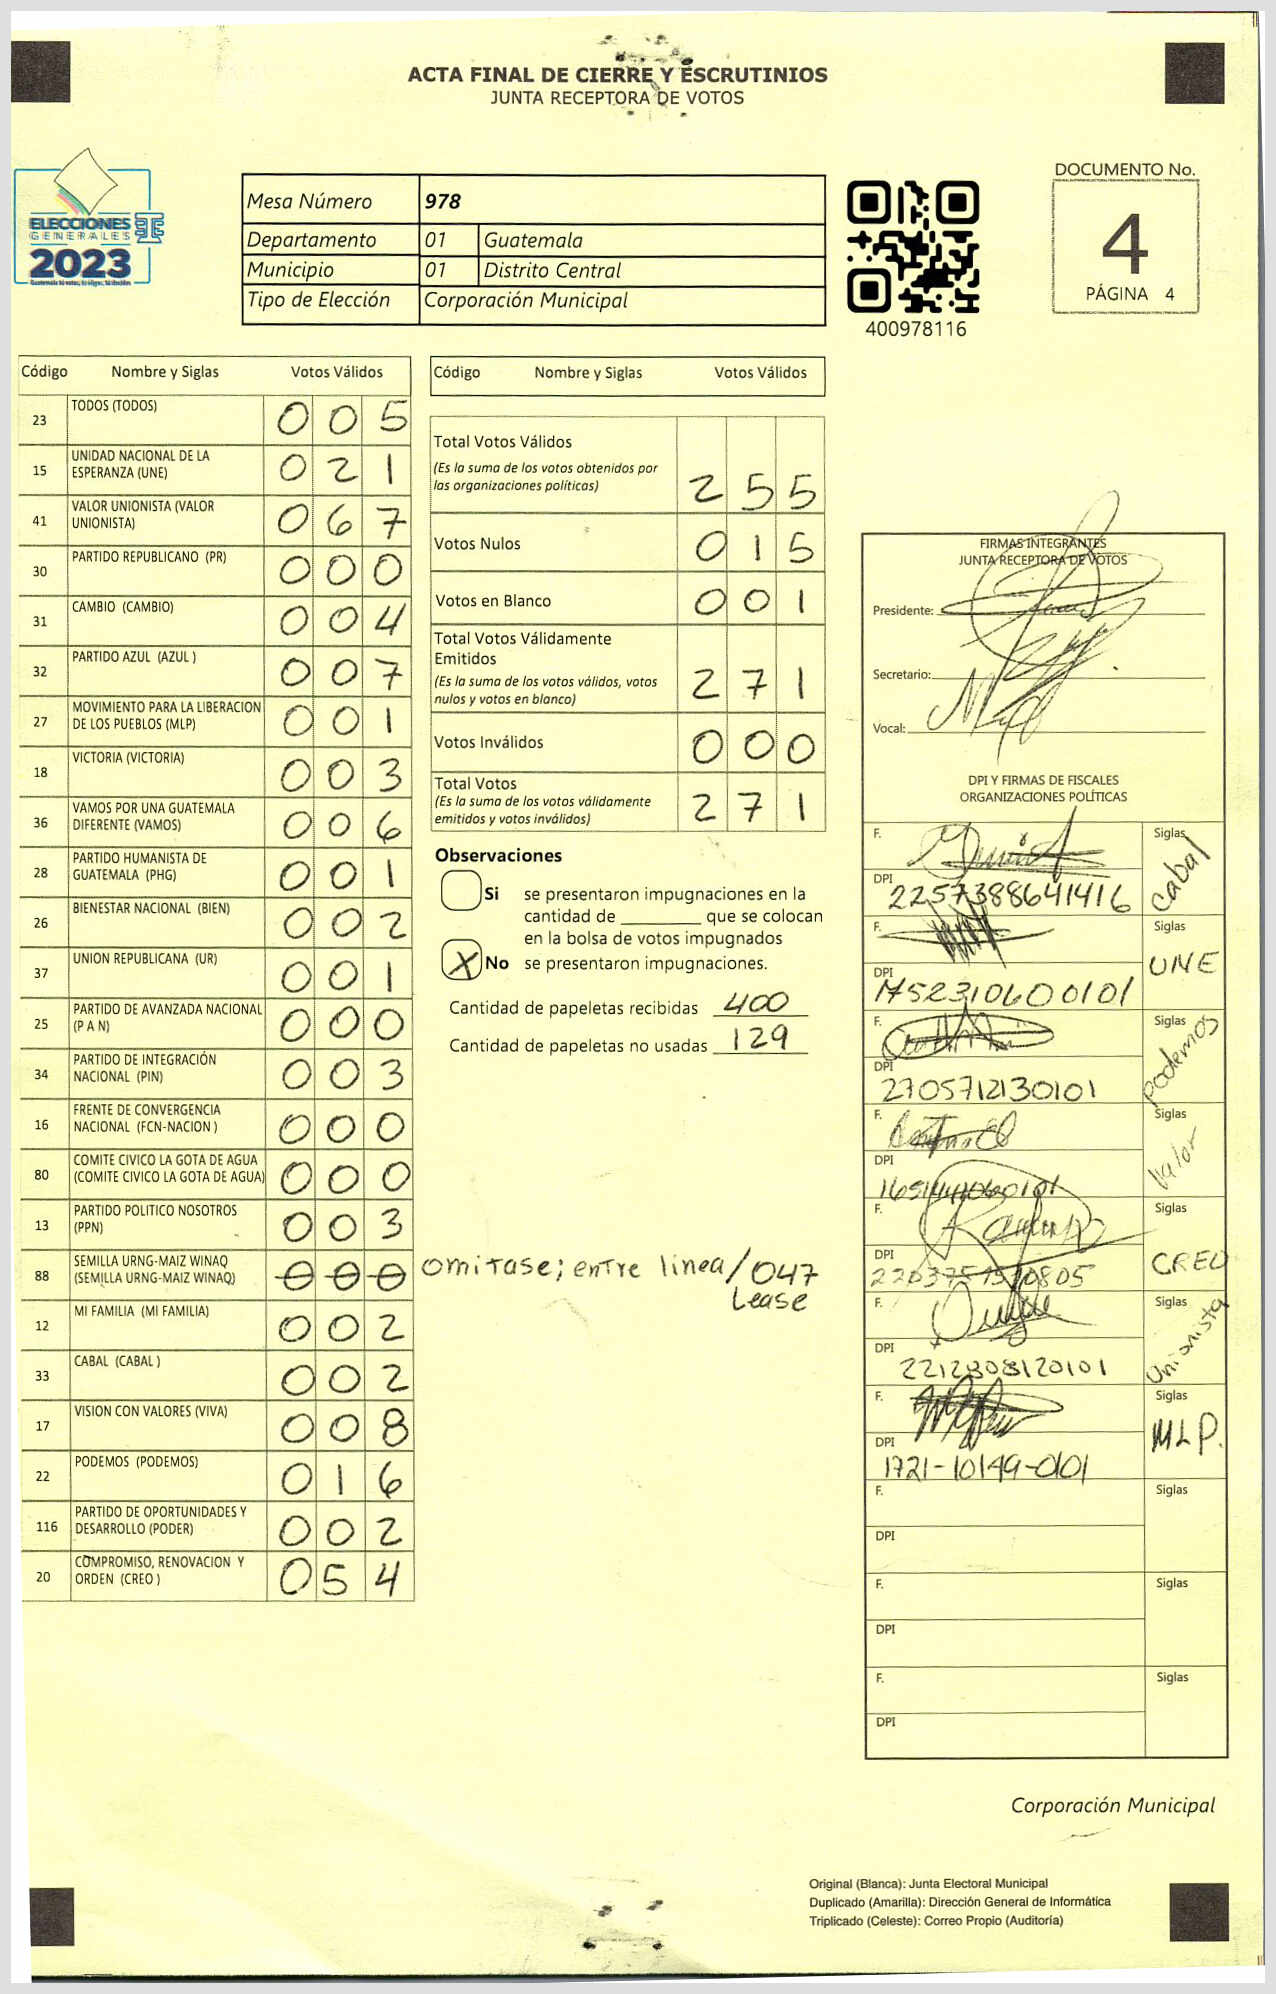 ACTA FINAL DE CIERRE Y ESCRUTINIOS
JUNTA RECEPTORA DE VOTOS
ELECCIONES
GENERALES
2023
Mesa Número 978
Departamento 01 Guatemala
Municipio 01 Distrito Central
Tipo de Elección Corporación Municipal
400978116
DOCUMENTO No.
4
PÁGINA 4
Código Nombre y Siglas Votos Válidos
23 TODOS (TODOS) 0 0 5
15 UNIDAD NACIONAL DE LA ESPERANZA (UNE) 0 2 1
41 VALOR UNIONISTA (VALOR UNIONISTA) 0 6 7
30 PARTIDO REPUBLICANO (PR) 0 0 0
31 CAMBIO (CAMBIO) 0 0 4
32 PARTIDO AZUL (AZUL ) 0 0 7
27 MOVIMIENTO PARA LA LIBERACION DE LOS PUEBLOS (MLP) 0 0 1
18 VICTORIA (VICTORIA) 0 0 3
36 VAMOS POR UNA GUATEMALA DIFERENTE (VAMOS) 0 0 6
28 PARTIDO HUMANISTA DE GUATEMALA (PHG) 0 0 1
26 BIENESTAR NACIONAL (BIEN) 0 0 2
37 UNION REPUBLICANA (UR) 0 0 1
25 PARTIDO DE AVANZADA NACIONAL (P A N) 0 0 0
34 PARTIDO DE INTEGRACIÓN NACIONAL (PIN) 0 0 3
16 FRENTE DE CONVERGENCIA NACIONAL (FCN-NACION ) 0 0 0
80 COMITE CIVICO LA GOTA DE AGUA (COMITE CIVICO LA GOTA DE AGUA) 0 0 0
13 PARTIDO POLITICO NOSOTROS (PPN) 0 0 3
88 SEMILLA URNG-MAIZ WINAQ (SEMILLA URNG-MAIZ WINAQ) 0 0 0 omitase; entre linea/047
Lease
12 MI FAMILIA (MI FAMILIA) 0 0 2
33 CABAL (CABAL ) 0 0 2
17 VISION CON VALORES (VIVA) 0 0 8
22 PODEMOS (PODEMOS) 0 1 6
116 PARTIDO DE OPORTUNIDADES Y DESARROLLO (PODER) 0 0 2
20 COMPROMISO, RENOVACION Y ORDEN (CREO ) 0 5 4
Código Nombre y Siglas Votos Válidos
Total Votos Válidos
(Es la suma de los votos obtenidos por
las organizaciones políticas) 2 5 5
Votos Nulos 0 1 5
Votos en Blanco 0 0 1
Total Votos Válidamente
Emitidos
(Es la suma de los votos válidos, votos
nulos y votos en blanco) 2 7 1
Votos Inválidos 0 0 0
Total Votos
(Es la suma de los votos válidamente
emitidos y votos inválidos) 2 7 1
Observaciones
Si se presentaron impugnaciones en la
cantidad de ________ que se colocan
en la bolsa de votos impugnados
X No se presentaron impugnaciones.
Cantidad de papeletas recibidas 400
Cantidad de papeletas no usadas 129
FIRMAS INTEGRANTES
JUNTA RECEPTORA DE VOTOS
Presidente:
Secretario:
Vocal:
DPI Y FIRMAS DE FISCALES
ORGANIZACIONES POLÍTICAS
F. Siglas cabal
DPI 2257388641416
F. Siglas UNE
DPI 1752310600101
F. Siglas podemos
DPI 2705712130101
F. Siglas Valor
DPI
F. Siglas CREO
DPI
F. Siglas Unionista
DPI 2212808120101
F. Siglas MLP.
DPI 1721-10149-0101
F. Siglas
DPI
F. Siglas
DPI
F. Siglas
DPI
Corporación Municipal
Original (Blanca): Junta Electoral Municipal
Duplicado (Amarilla): Dirección General de Informática
Triplicado (Celeste): Correo Propio (Auditoría)